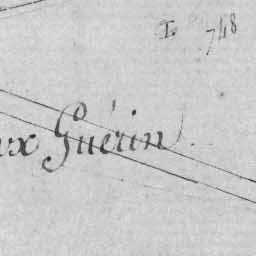 L. 748
ux Guérin